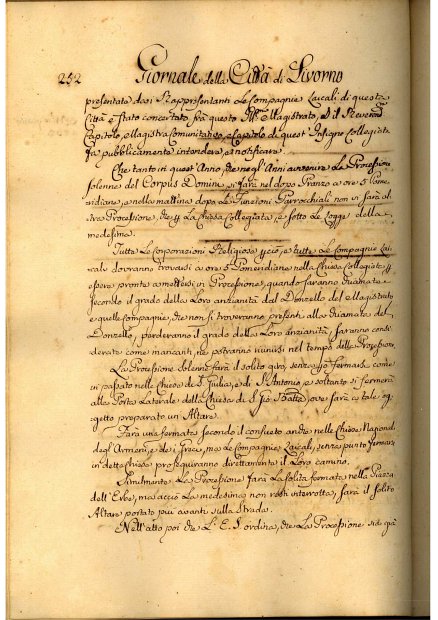 252 Giornale della Città di Livorno
presentata dai Rappresentanti Le Compagnie Laicali di questa
Città è stato concertato, fra questo Magistrato, e il Reverend
Capitolo, e Magistra Comunitativo, e Capitolo di quest' Insigne Collegiata
fa pubblicamente intendere, e notificare.
Che tanto in quest' Anno, che negl' Anni avvenire La Processione
solenne del Corpus Domini, si farà nel dopo Pranzo a ore 5 Pome
ridiane, e nella mattina dopo Le Funzioni Parrocchiali non si farà al
tra Processione, che per La Chiesa Collegiata, e sotto Le Logge della
medesima.
Tutte Le Corporazioni Religiose perciò, e tutte Le Compagnie Lai
cali dovranno trovarsi a ore 5 Pomeridiane nella Chiesa Collegiata per
essere pronte a mettersi in Processione, quando saranno chiamate
secondo il grado della Loro anzianità dal Donzello del Magistrato
e quelle Compagnie, che non si troveranno presenti alla chiamata del
Donzello, perderanno il grado della Loro anzianità, saranno consi
derate come mancanti, ne potranno riunirsi nel tempo della Processione.
La Processione solenne farà il solito giro, senza però fermarsi come
in passato nelle Chiese di S. Giulia, e di S. Antonio, e soltanto si fermerà
alla Porta Laterale della Chiesa di S. Gio. Batta, ove sarà a tale og
getto preparato un Altare.
Farà una fermata secondo il consueto anche nelle Chiese Nazionali
degl' Armeni, e dei Greci, ma Le Compagnie Laicali, senza punto fermarsi
in dette Chiese proseguiranno direttamente il Loro camino.
Similmente La Processione farà La solita fermata nella Piazza
dell' Erbe, ma acciò La medesima non resti interrotta, sarà il solito
Altare portato più avanti sulla Strada.
Nell' atto poi che L' E. S. ordina, che La Processione sia già